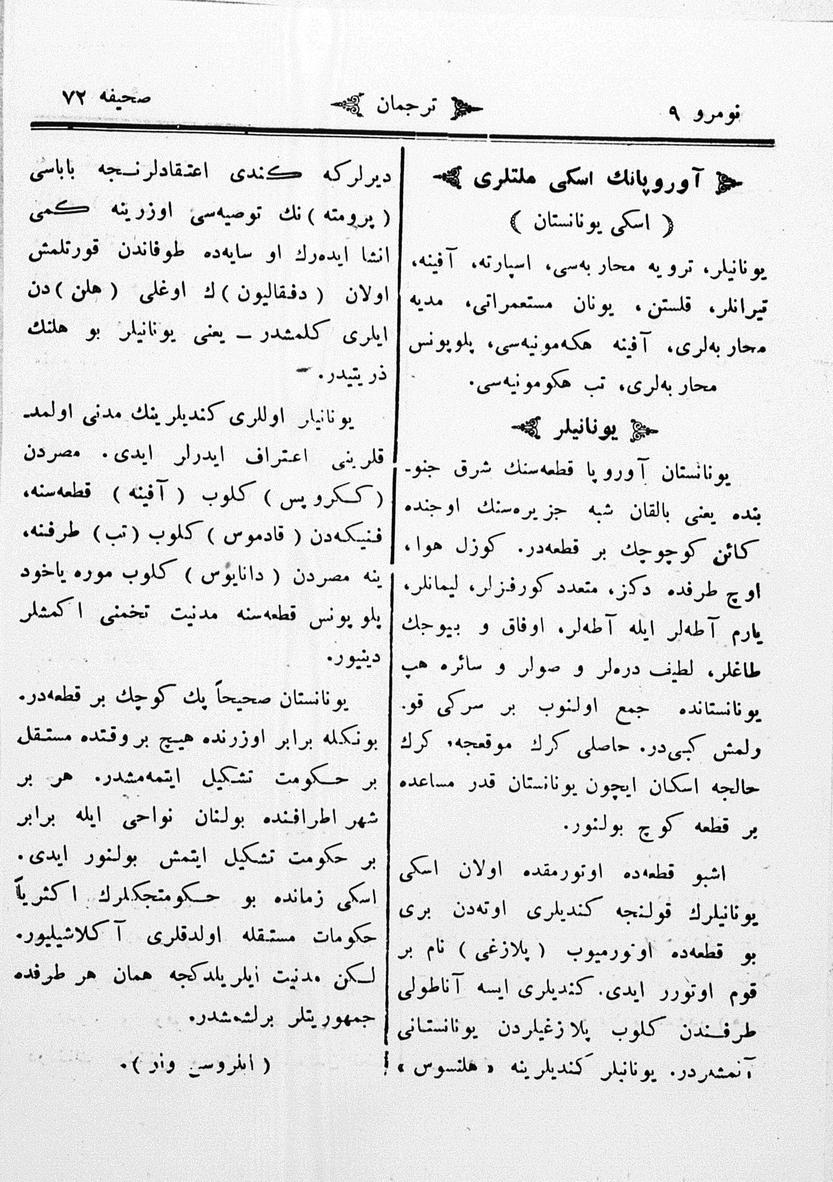 نومرو ۹
ترجمان
صحیفه ۷۲
آوروپانك اسكی ملتلری
( اسكی یونانستان )
یونانیلر، ترویه محاربه‌سی، اسپارته، آفینه،
تیرانلر، قلستن، یونان مستعمراتی، مدیه
محاربه‌لری، آفینه هكه‌مونیه‌سی، پلوپونس
محاربه‌لری، تب هكومونیه‌سی.
یونانیلر
یونانستان آوروپا قطعه‌سنك شرق جنو۔
بنده یعنی بالقان شبه جزیره‌سنك اوجنده
كائن كوچوجك بر قطعه‌در. كوزل هوا،
اوچ طرفده دكز، متعدد كورفزلر، لیمانلر،
یارم آطه‌لر ایله آطه‌لر، اوفاق و بیوجك
طاغلر، لطیف دره‌لر و صولر و سائره هپ
یونانستانده جمع اولنوب بر سركی قو۔
ولمش كبی‌در. حاصلی كرك موقعجه، كرك
حالجه اسكان ایچون یونانستان قدر مساعده
بر قطعه كوچ بولنور.
اشبو قطعه‌ده اوتورمقده اولان اسكی
یونانیلرك قولنجه كندیلری اوته‌دن بری
بو قطعه‌ده اوتورمیوب ( پلازغی ) نام بر
قوم اوتورر ایدی. كندیلری ایسه آناطولی
طرفندن كلوب پلازغیلردن یونانستانی
آلمشلردر. یونانیلر كندیلرینه « هلنسوس »
دیرلركه كندی اعتقادلرنجه باباسی
( پرومته ) نك توصیه‌سی اوزرینه كمی
انشا ایده‌رك او سایه‌ده طوفاندن قورتلمش
اولان ( دفقالیون ) ك اوغلی ( هلن ) دن
ایلری كلمشدر ــ یعنی یونانیلر بو هلنك
ذریتیدر. ــ
یونانیلر اوللری كندیلرینك مدنی اولمد۔
قلرینی اعتراف ایدرلر ایدی. مصردن
( ككروپس ) كلوب ( آفینه ) قطعه‌سنه،
فنیكه‌دن ( قادموس ) كلوب ( تب ) طرفنه،
ینه مصردن ( دانایوس ) كلوب موره یاخود
پلوپونس قطعه‌سنه مدنیت تخمنی اكمشلر
دینیور.
یونانستان صحیحاً پك كوچك بر قطعه‌در.
بونكله برابر اوزرنده هیچ بر وقتده مستقل
بر حكومت تشكیل ایتمه‌مشدر. هر بر
شهر اطرافنده بولنان نواحی ایله برابر
بر حكومت تشكیل ایتمش بولنور ایدی.
اسكی زمانده بو حكومتجكلرك اكثریاً
حكومات مستقله اولدقلری آكلاشیلیور.
لكن مدنیت ایلریلدكجه همان هر طرفده
جمهوریتلر برلشمشدر.
وار ) .